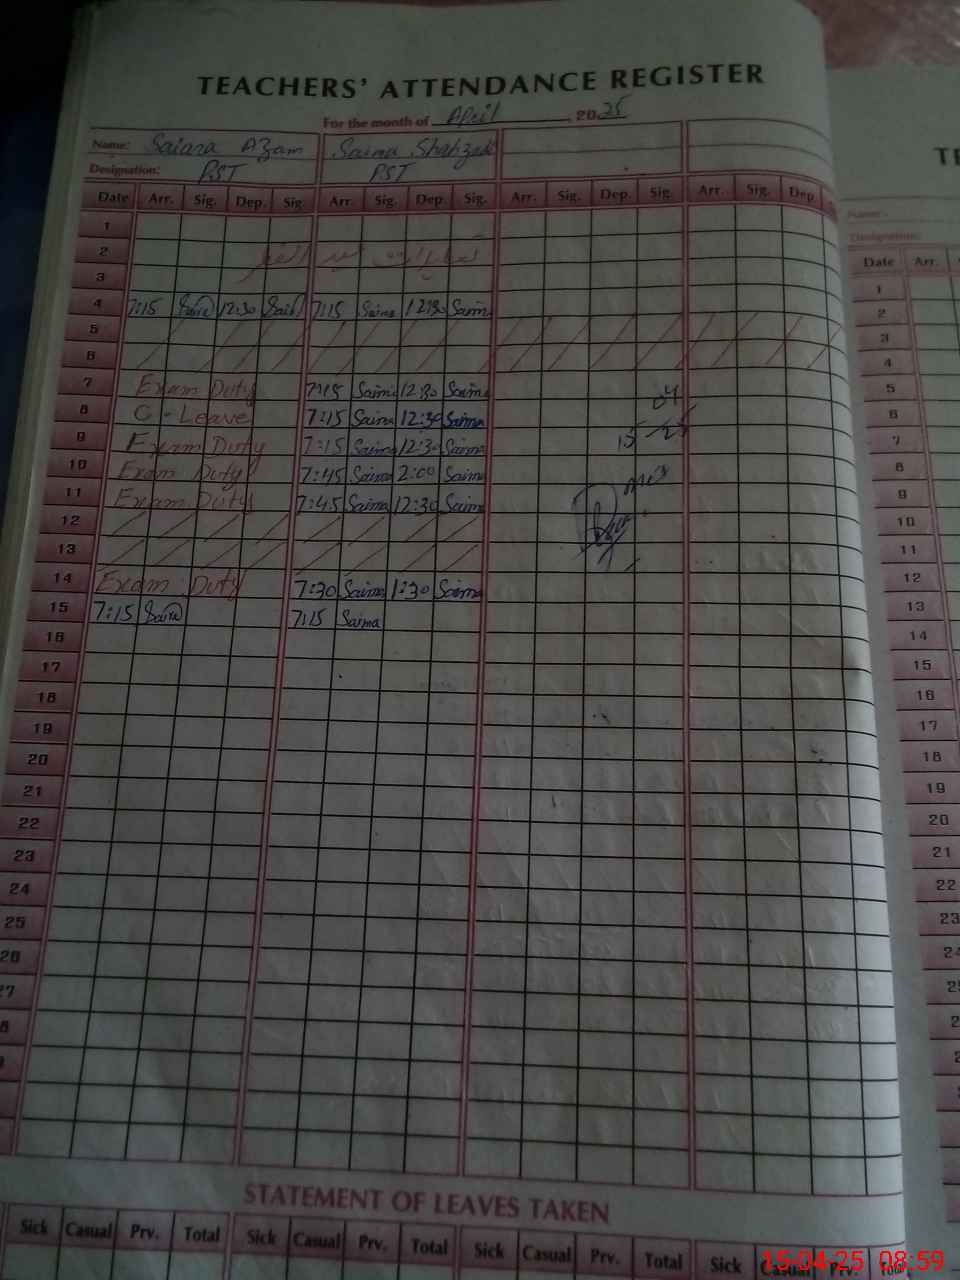 TEACHERS' ATTENDANCE REGISTER
For the month of April 2025
Name: Saiara Azam Saima Shahzadi
Designation: PST PST
Date Arr. Sig. Dep. Sig. Arr. Sig. Dep. Sig. Arr. Sig. Dep. Sig. Arr. Sig. Dep.
1
2 تعطیلات عید الفطر
3
4 7:15 12:30 7:15 Saima 12:30 Saima
5
6
7 Exam Duty 7:15 Saima 12:30 Saima
8 C-Leave 7:15 Saima 12:30 Saima
9 Exam Duty 7:15 Saima 12:30 Saima
10 Exam Duty 7:45 Saima 2:00 Saima
11 Exam Duty 7:45 Saima 12:30 Saima
12
13
14 Exam Duty 7:30 Saima 1:30 Saima
15 7:15 7:15 Saima
16
17
18
19
20
21
22
23
24
25
26
27
8
9
STATEMENT OF LEAVES TAKEN
Sick Casual Prv. Total Sick Casual Prv. Total Sick Casual Prv. Total Sick Casual Prv.
15-04-25 08:59
Name:
Designation:
Date Arr.
1
2
3
4
5
6
7
8
9
10
11
12
13
14
15
16
17
18
19
20
21
22
23
24